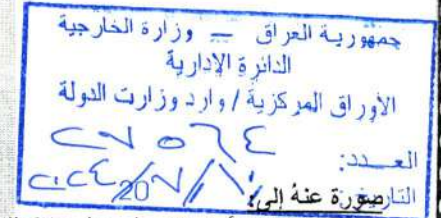 جمهورية العراق — وزارة الخارجية
الدائرة الإدارية
الأوراق المركزية / وارد وزارت الدولة
العـــدد:
التاريخ: 20
صورة عنه إلى: